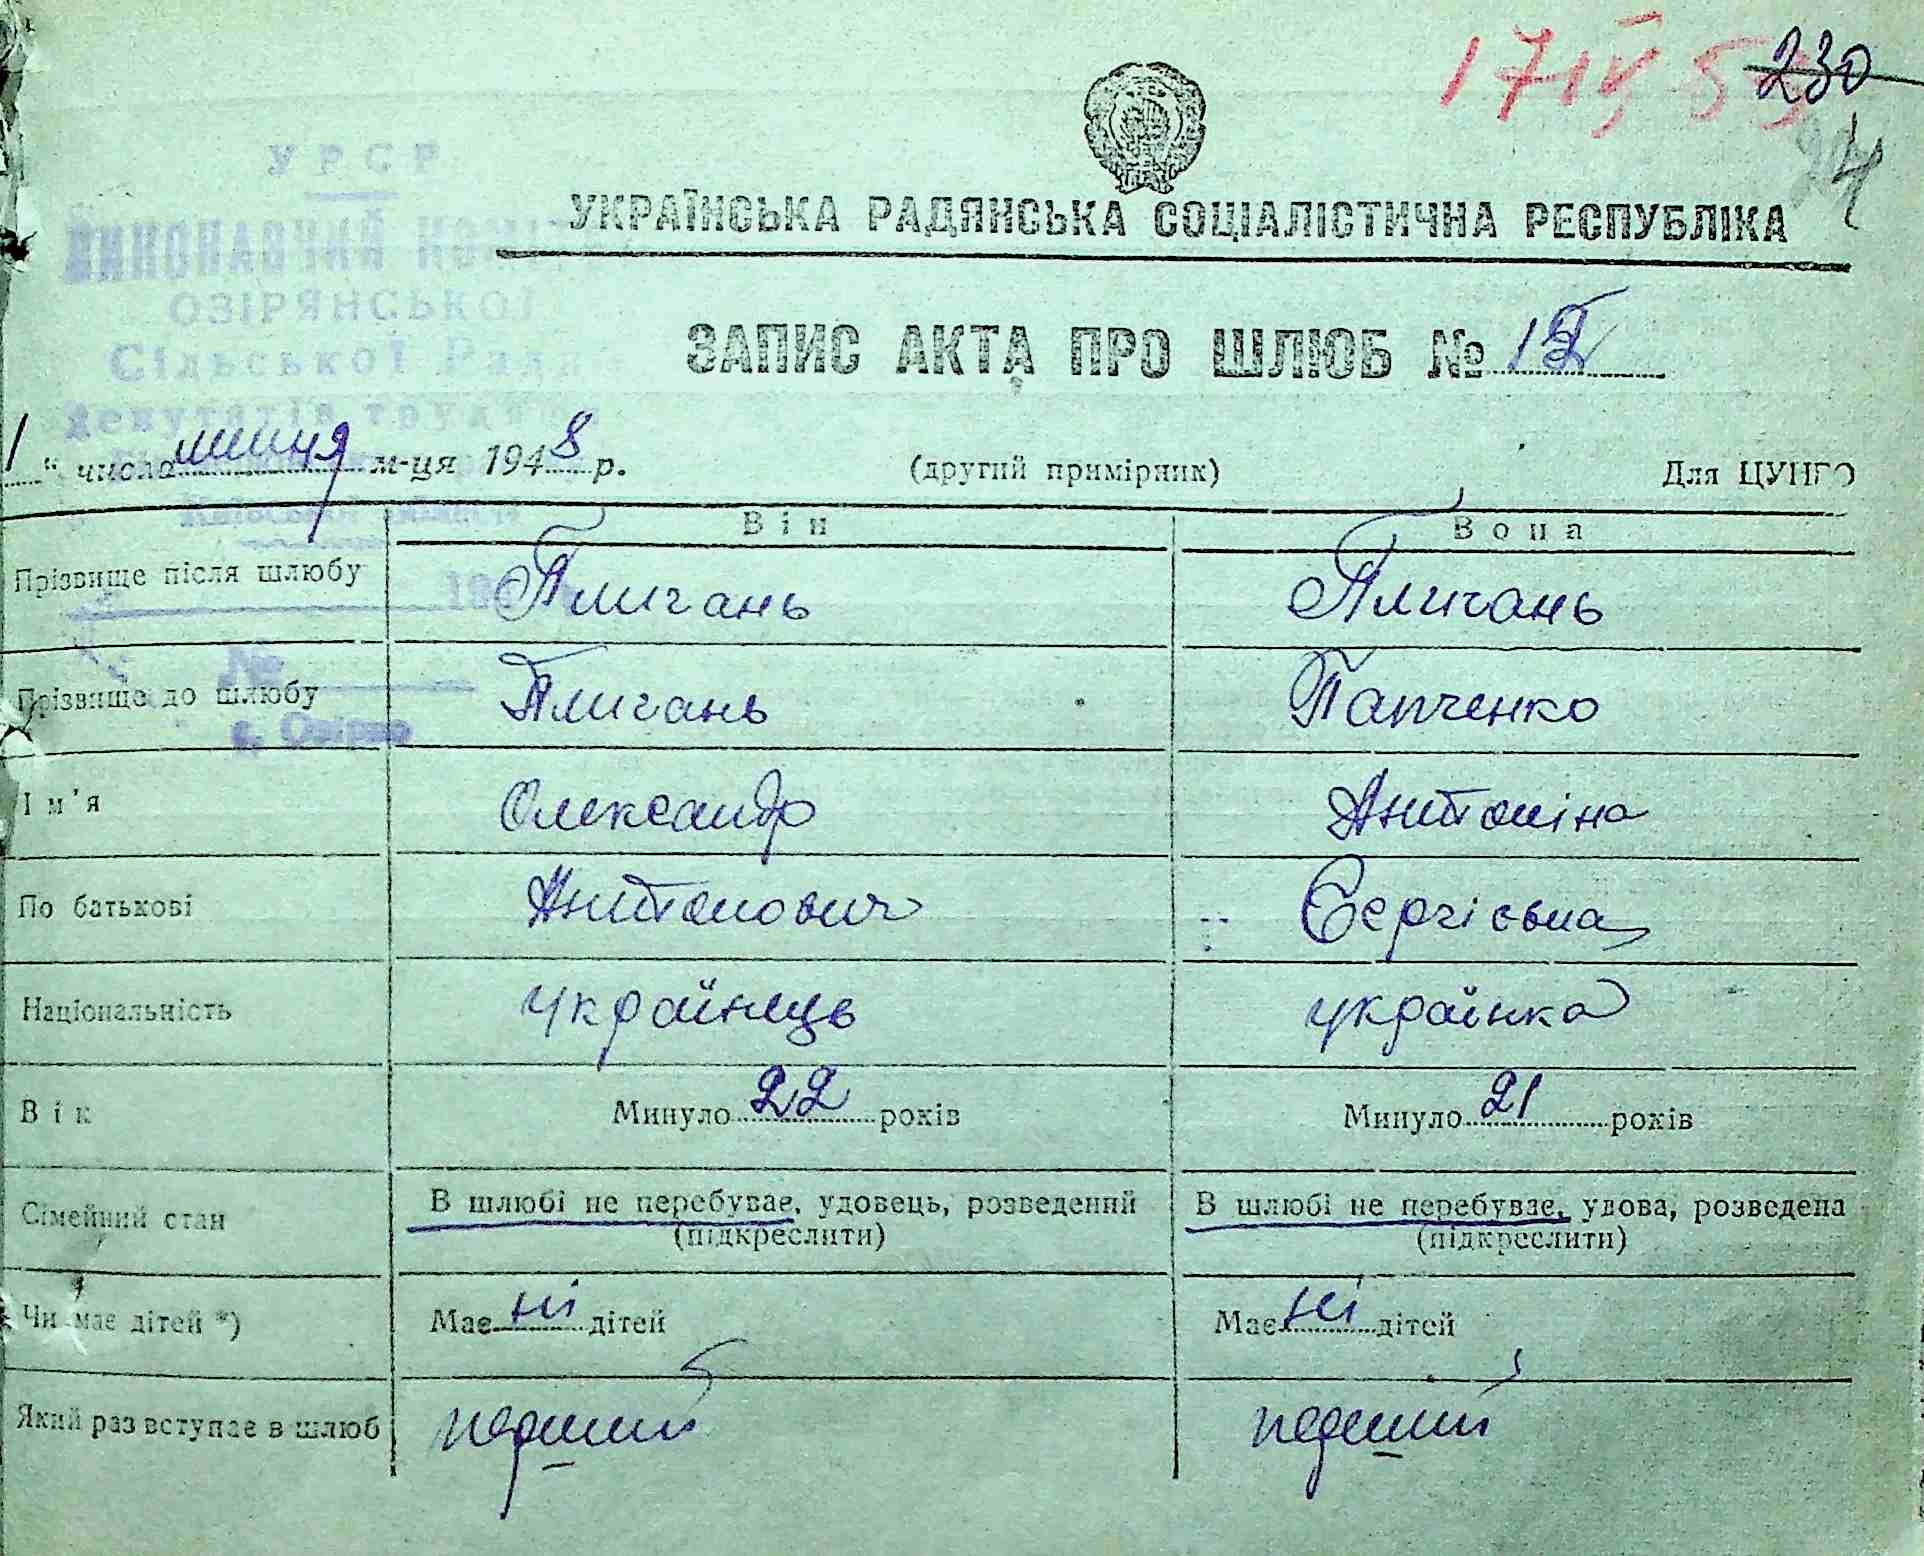 230
4
УРСР
ВИКОНАВЧИЙ
ОЗІРЯНСЬКОЇ
Сільської Ради
Депутатів трудящих
УКРАЇНСЬКА РАДЯНСЬКА СОЦІАЛІСТИЧНА РЕСПУБЛІКА
ЗАПИС АКТА ПРО ШЛЮБ №
1 " числа липця м-ця 1948 р. (другий примірник) Для ЦУНГО
Він Вона
Прізвище після шлюбу Пличань Пличань
№
Прізвище до шлюбу Пличань Папченко
Ім'я Олександр Антоніна
По батькові Антонович Сергієвна
Національність українець українка
Вік Минуло 22 років Минуло 21 років
Сімейний стан В шлюбі не перебуває, удовець, розведений В шлюбі не перебуває, удова, розведена
(підкреслити) (підкреслити)
Чи має дітей *) Має ні дітей Має ні дітей
Який раз вступає в шлюб перший перший